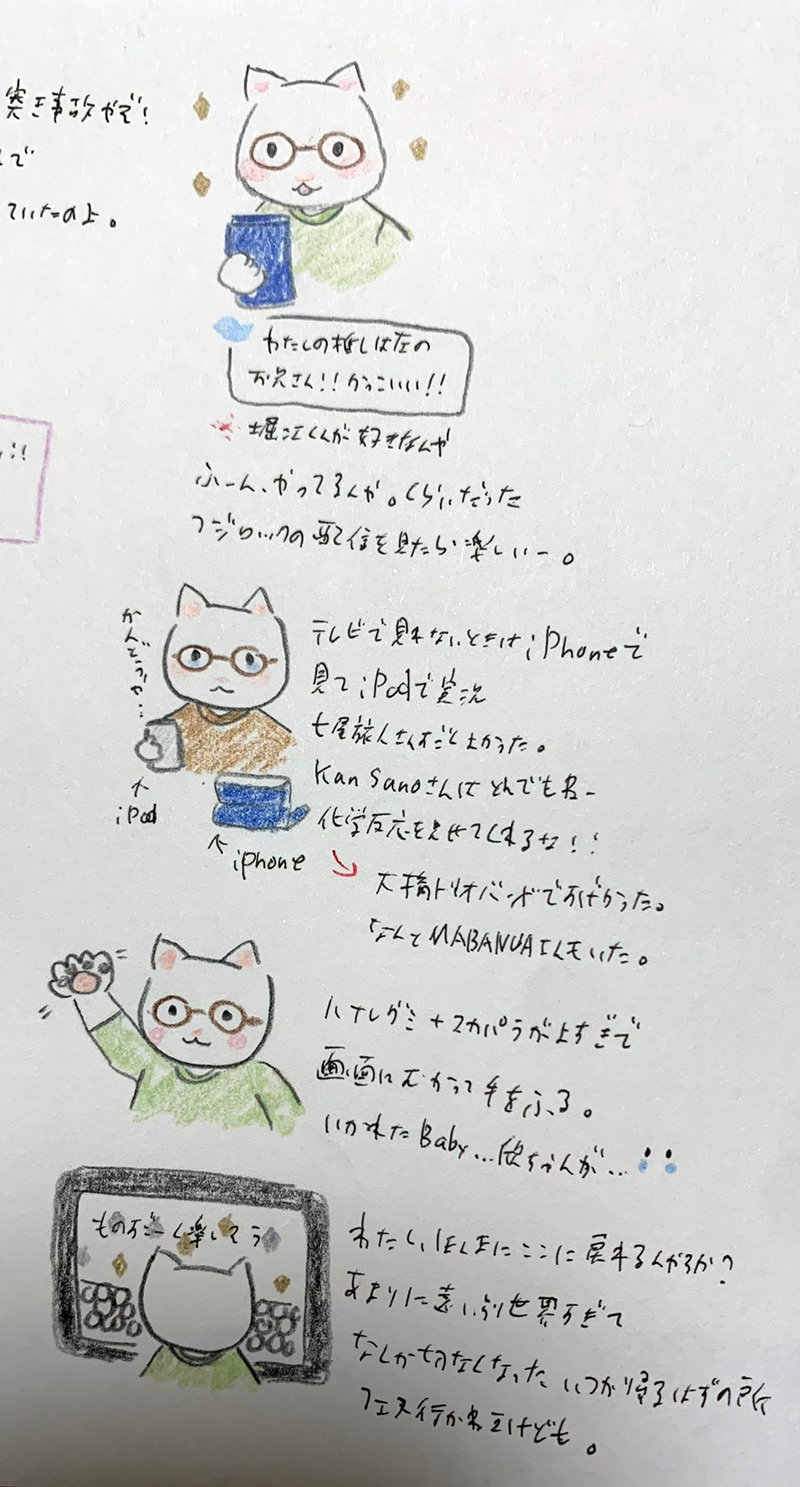 突き事故やで!
で
ていたのよ。
わたしの推しは左の
お兄さん!!かっこいい!!
堀江くんが好きなんや
ふーん、やってるんか。くらいだった
フジロックの配信を見たら楽しいー。
かんどうや…
テレビで見れないときはiPhoneで
見てiPodで実況
七尾旅人さんすごくよかった。
Kan Sanoさんはとんでもねー
化学反応を見せてくれるな!!
iPod
iphone
大橋トリオバンドですげかった。
なんとMABANUAさんもいた。
ハナレグミ+スカパラがよすぎで
画面にむかって手をふる。
いかれたBaby…欣ちゃんが…
ものすごーく楽しそう
わたし、ほんまにここに戻れるんやろか?
あまりに遠い世界すぎて
なんかせつなくなった いつか帰るはずの所
フェス行かねえけども。